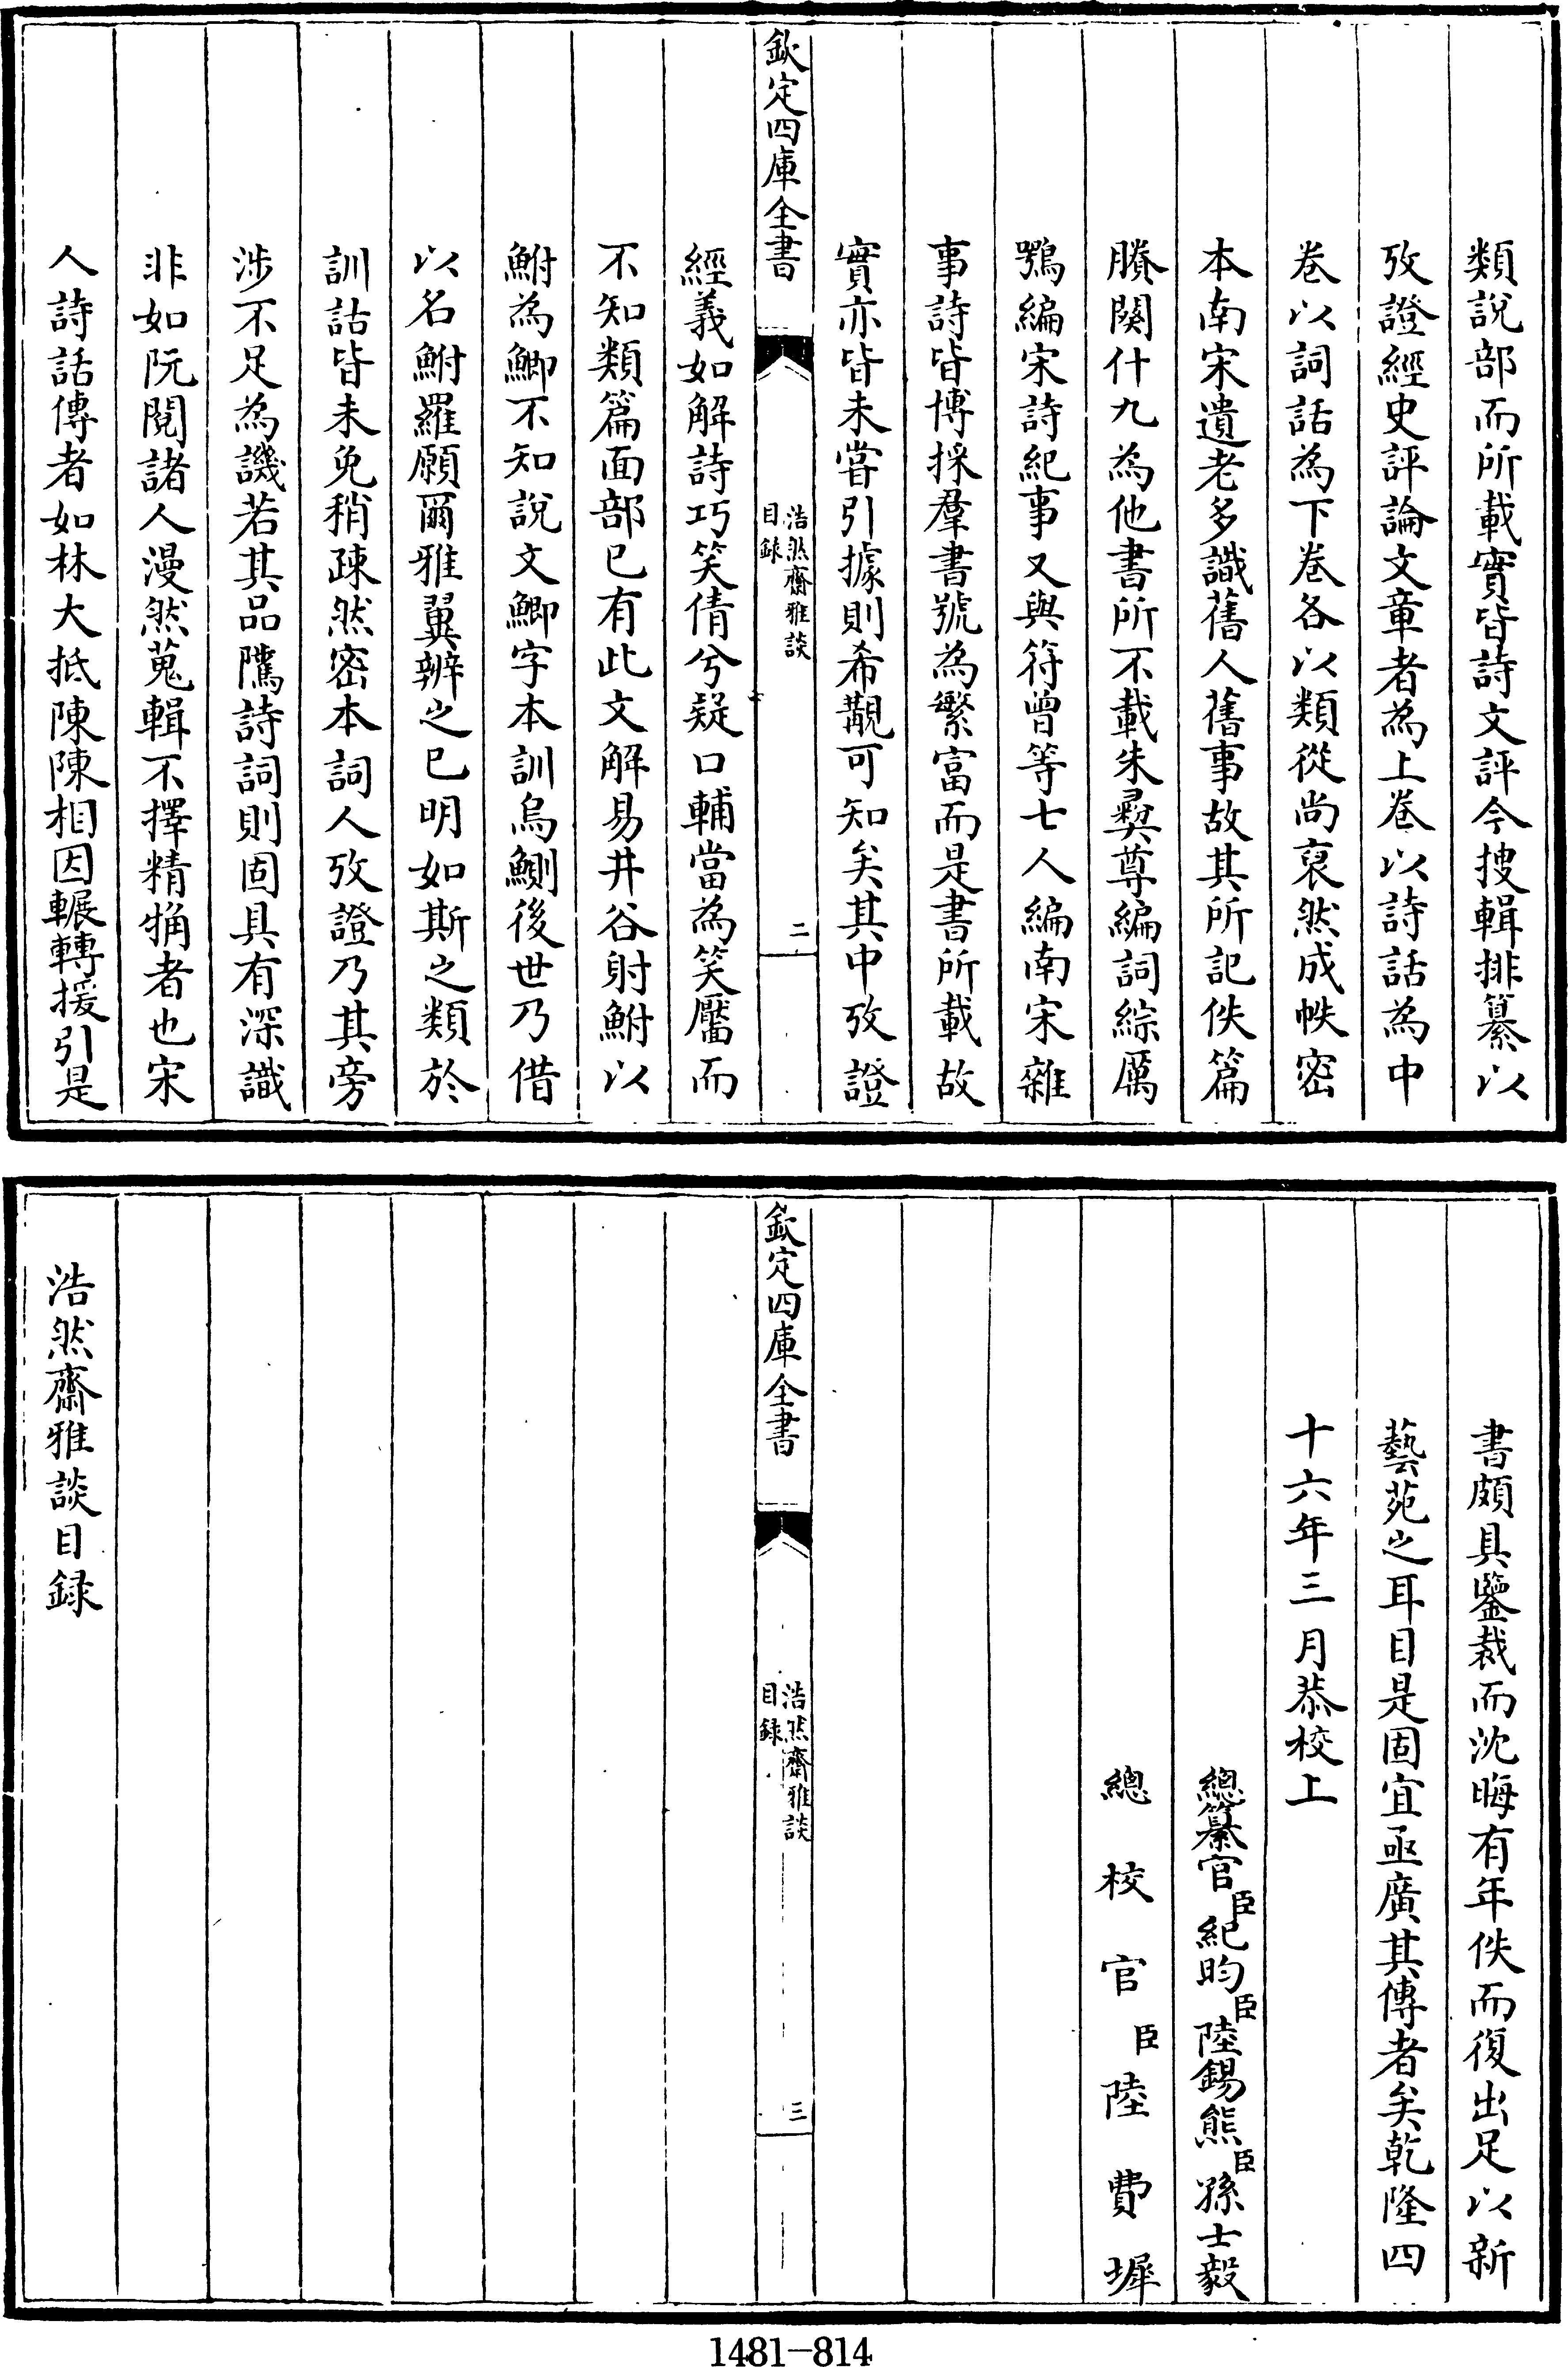 類說部而所載實皆詩文評今搜輯排纂以
攷證經史評論文章者為上卷以詩話為中
卷以詞話為下卷各以類從尚裒然成帙密
本南宋遺老多識舊人舊事故其所記佚篇
賸闋什九為他書所不載朱彞尊編詞綜厲
鶚編宋詩紀事又與符曾等七人編南宋雜
事詩皆博採羣書號為繁富而是書所載故
實亦皆未嘗引據則希覯可知矣其中攷證
欽定四庫全書
浩然齋雅談
目録
二
經義如解詩巧笑倩兮疑口輔當為笑靨而
不知類篇面部已有此文解易井谷射鮒以
鮒為鯽不知說文鯽字本訓烏鰂後世乃借
以名鮒羅願爾雅翼辨之已明如斯之類於
訓詁皆未免稍疎然密本詞人攷證乃其旁
涉不足為譏若其品隲詩詞則固具有深識
非如阮閱諸人漫然蒐輯不擇精觕者也宋
人詩話傳者如林大抵陳陳相因輾轉援引是
書頗具鑒裁而沈晦有年佚而復出足以新
藝苑之耳目是固宜亟廣其傳者矣乾隆四
十六年三月恭校上
總纂官臣紀昀臣陸錫熊臣孫士毅
總校官臣陸費墀
欽定四庫全書
浩然齋雅談
目録
三
浩然齋雅談目録
1481-814